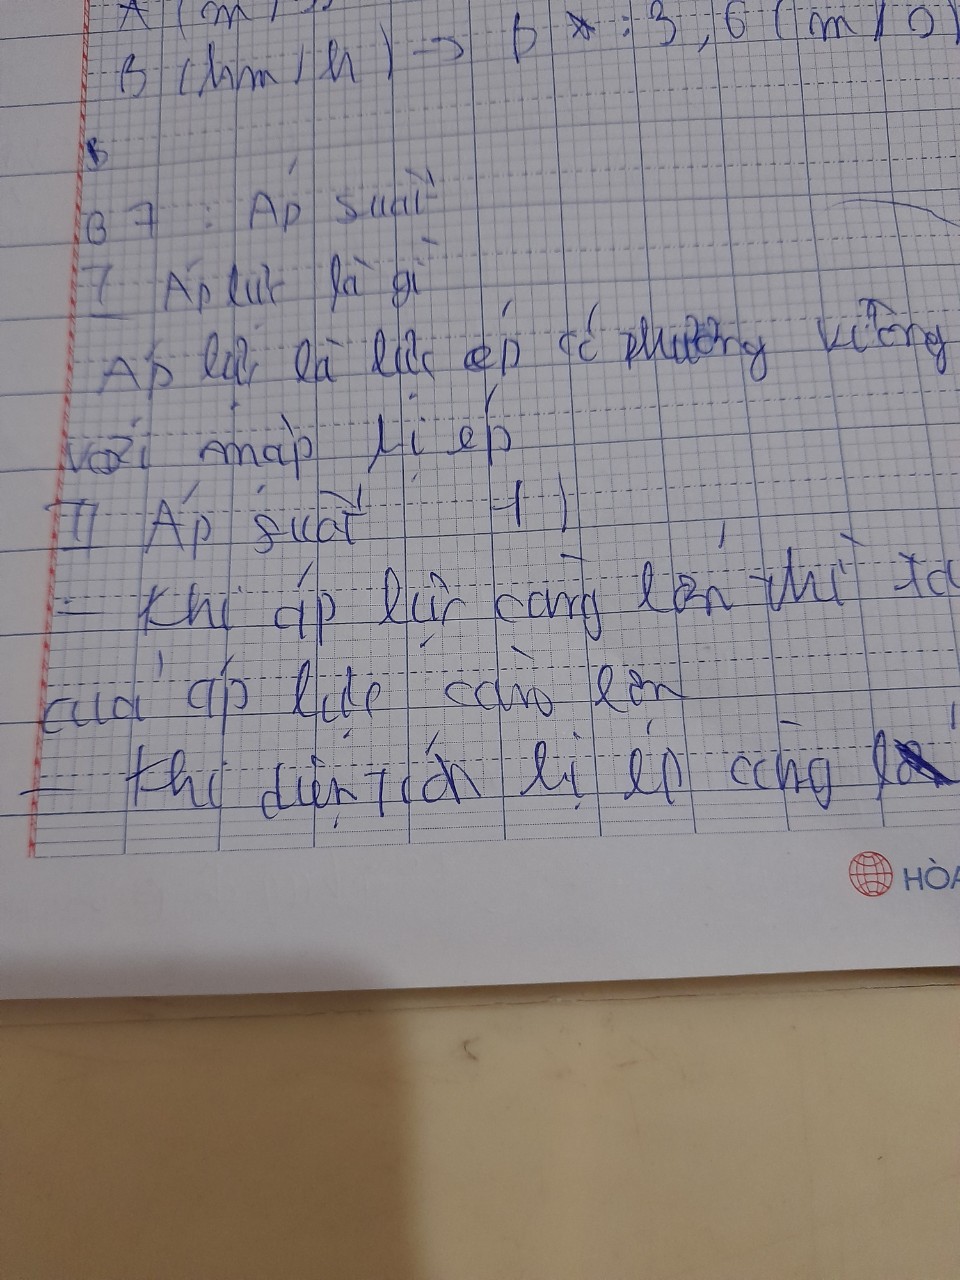 A (m/
B (km/h) → B : 3,6 (m/s)
B
B7 : Áp suất
I Áp lực là gì
Áp lực là lực ép có phương vuông
với mặp bị ép
II Áp suất 1)
- Khi áp lực càng lớn thì tá
của áp lực càng lớn
- Khi diện tích bị ép càng
HÒA